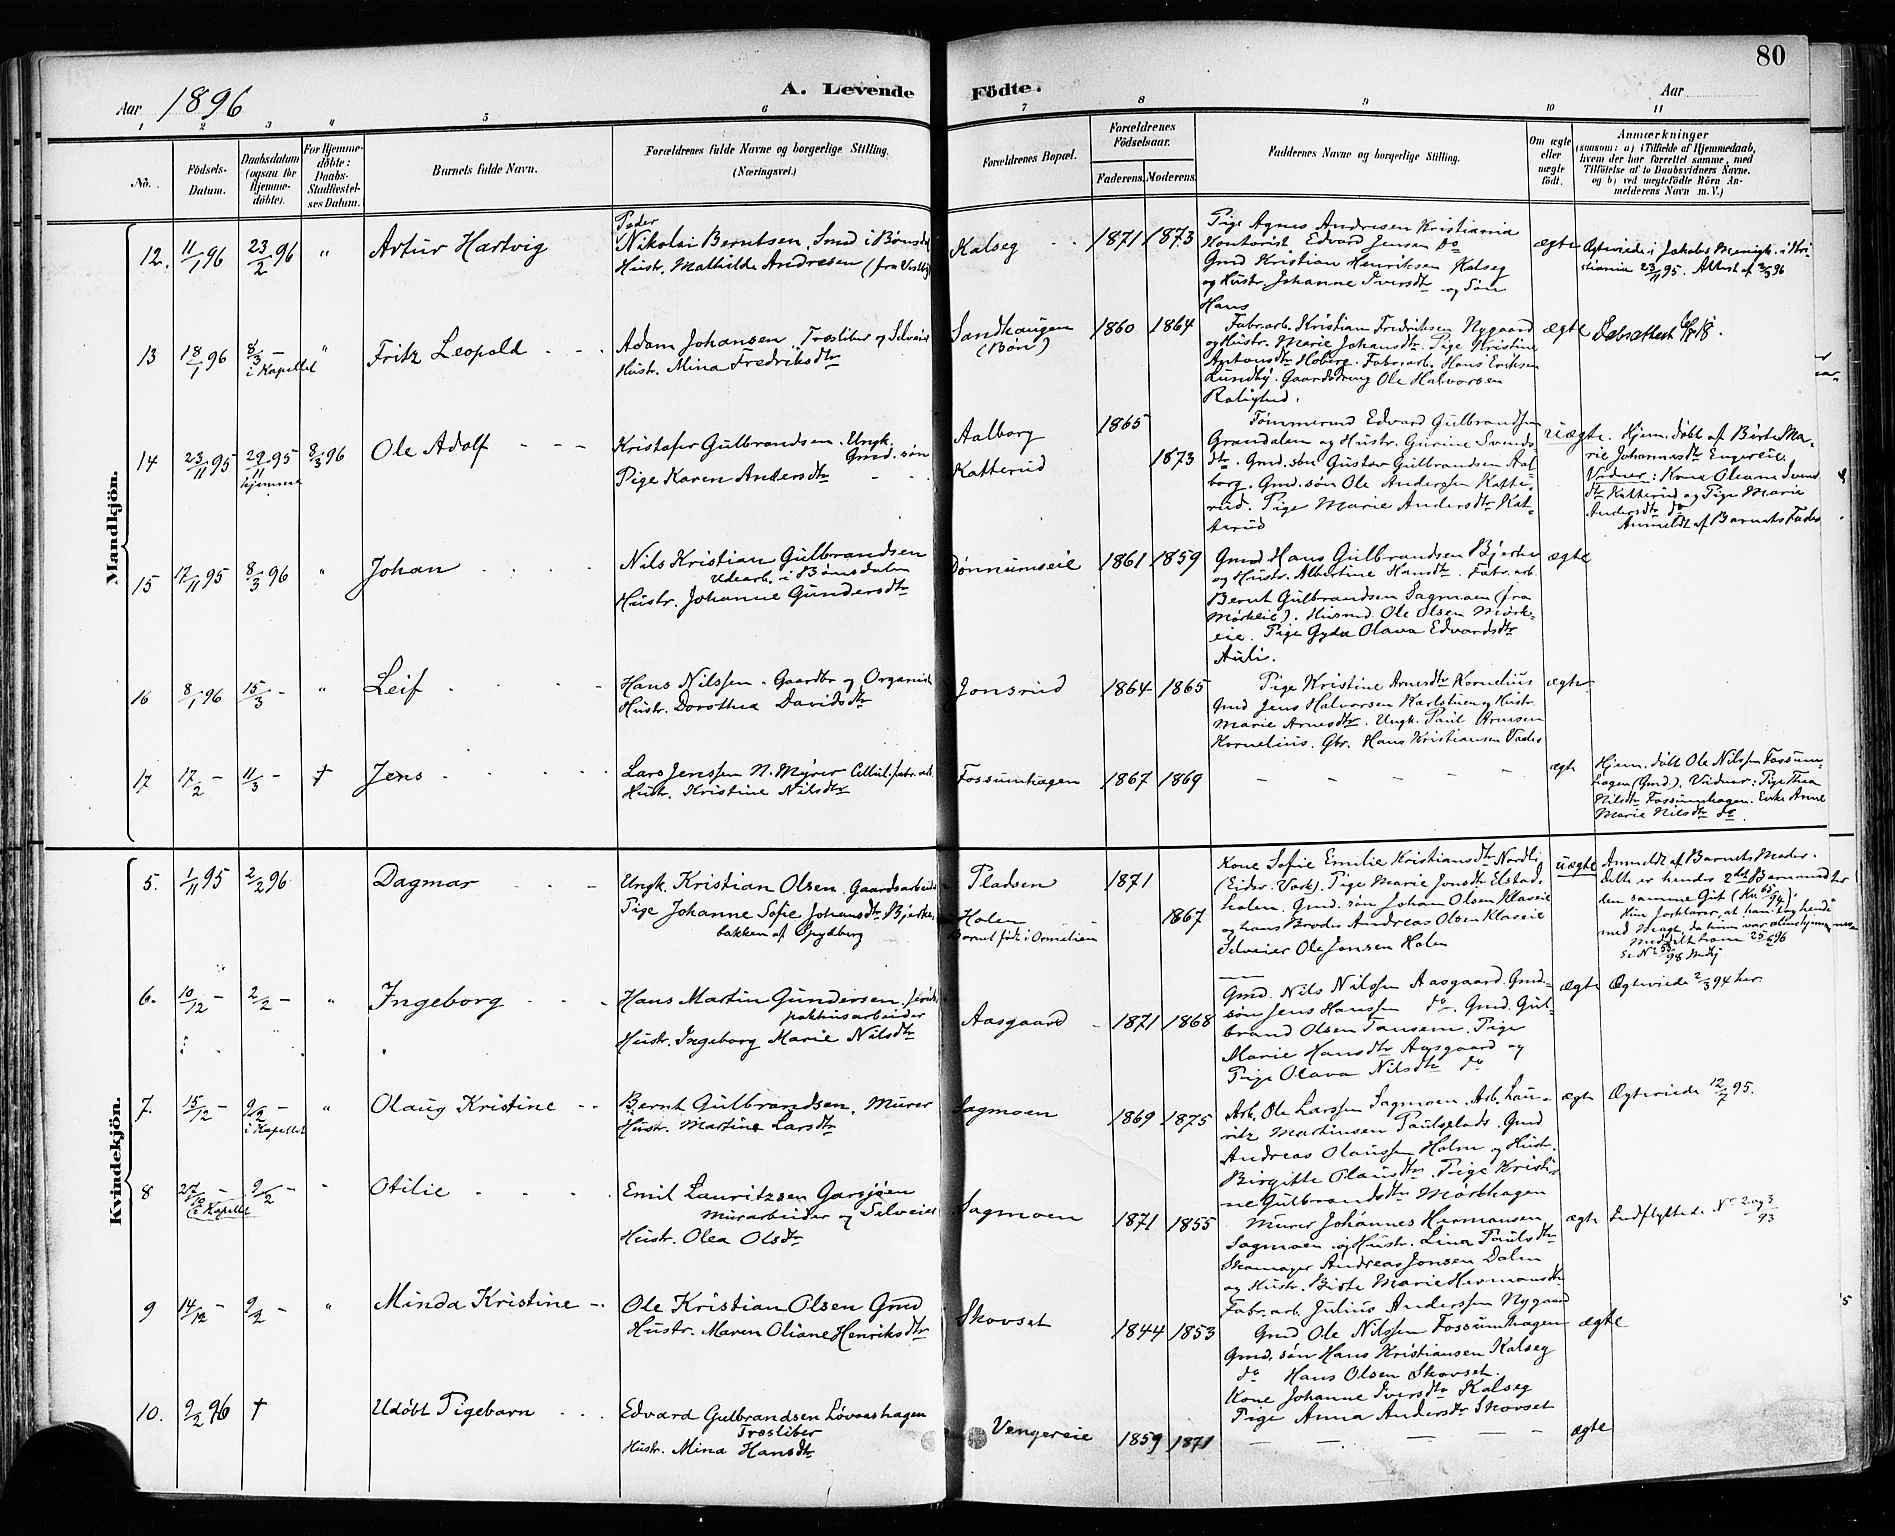 80
A. Levende Födte.
Aar 1896
Aar
1 2 3 4 5 6 7 8 9 10 11
No.
Födsels-Datum.
Daabsdatum (ogsaa for Hjemme-döbte).
For Hjemme-döbte: Daabs-Stadfæstel-ses Datum.
Barnets fulde Navn.
Forældrenes fulde Navne og borgerlige Stilling. (Næringsvei.)
Forældrenes Bopæl.
Forældrenes Födselsaar.
Faderens. Moderens.
Faddernes Navne og borgerlige Stilling.
Om ægte eller uægte födt.
Anmærkninger
(saasom: a) i Tilfælde af Hjemmedaab, hvem der har forrettet samme, med Tilföielse af to Daabsvidners Navne, og b) ved uægtefödte Börn An-melderens Navn m. V.)
Mandkjön.
12. 11/1 96 23/2 96 " Artur Hartvig
Peder
Nikolai Berntsen, Smed i Bønsdal
Hustr. Mathilde Andresen (fra Vestby)
Kalseg 1871 1873
Pige Agnes Andresen Kristiania
Kontorist Edvard Jensen do
Gmd Kristian Henriksen Kalseg
og Hustr. Johanne Iversdtr og Søn
Hans
ægte
Ægteviede i Jakobs Menigh. i Kri-
stiania 23/11 95. Attest af 2/3 96
13 18/1 96 8/3 - i Kapellet " Fritz Leopold
Adam Johansen, Træsliber og Selveier
Hustr. Mina Fredriksdtr
Sandhaugen (Bøn) 1860 1864
Fabr.arb. Kristian Fredriksen Nygaard
og Hustr. Marie Johansdtr. Pige Kristine
Antonsdtr Hoberg. Fabr.arb. Hans Eriksen
Lundby. Gaardsdreng Ole Halvorsen
Rolighed.
ægte
Daabsattest
14 23/11 95 29/11 95 hjemme 8/3 96 Ole Adolf
Kristofer Gulbrandsen. Ungk. Gmd. søn
Pige Karen Andersdtr
Aalborg 1865
Katterud 1873
Tømmermd Edvard Gulbrandsen
Grandalen og Hustr. Gurine Svends-
dtr. Gmd. søn Gustav Gulbrandsen Aal-
borg. Gmd. søn Ole Andersen Katte-
rud. Pige Marie Andersdtr Kat-
terud
uægte.
Hjem. døbt af Birte Ma-
rie Johannesdtr Engereie
Vidner: Kone Oleane Svends
dtr Katterud og Pige Marie
Andersdtr do
Anmeldt af Barnets Fader
15 17/11 95 8/3 96 " Johan
Nils Kristian Gulbrandsen
Udearb. i Bønsdalen
Hustr. Johanne Gundersdtr
Dønnumseie 1861 1859
Gmd Hans Gulbrandsen Bjerke
og Hustr. Albertine Hansdtr. Fabr.arb.
Bernt Gulbrandsen Sagmoen (fra
Mørkeie). Husmd. Ole Olsen Mørk-
eie. Pige Gyda Olava Edvardsdtr
Auli.
ægte
16 8/1 96 15/3 - " Leif
Hans Nilssen. Gaardbr og Organist
Hustr. Dorothea Davidsdtr
Jonsrud 1864 1865
Pige Kristine Arnesdtr Kornelius
Gmd Jens Halvorsen Karlstuen og Hustr.
Marie Arnesdtr. Ungk. Paul Arnesen
Kornelius. Gbr. Hans Kristiansen Vades
ægte
17 17/2 - 11/3 - † Jens
Lars Jenssen N. Myrer Cellul.fabr.arb.
Hustr. Kristine Nilsdtr
Fossumhagen 1867 1869 - - - - -
ægte
Hjem. døbt Ole Nilssen Fossum-
hagen (Gmd.). Vidner: Pige Thea
Nilsdtr Fossumhagen. Enke Anne
Marie Nilsdtr do.
Kvindekjön.
5. 1/11 95 2/2 96 Dagmar
Ungk. Kristian Olsen, Gaardsarbeider
Pige Johanne Sofie Johansdtr Bjerke-
bakken af Spydberg
Pladsen 1871
Holen 1867
Barnet født i Ormelien
Kone Sofie Emilie Kristiansdtr Nordli
(Eidsv. Værk). Pige Marie Jonsdtr Elstad
holen. Gmd. søn Johan Olsen Klæveie
og hans Broder Andreas Olsen Klæveie
Selveier Ole Jensen Holen
uægte
Anmeldt af Barnets Moder.
Dette er hendes 2det Barn med
den samme Gut
Hun forklarer, at han tog hende
med Magt, da hun var alene hjemme
6. 10/12 - 2/2 - " Ingeborg
Hans Martin Gundersen, Jernb.
pakhusarbeider
Hustr. Ingeborg Marie Nilsdtr
Aasgaard 1871 1868
Gmd. Nils Nilssen Aasgaard Gmd.
søn Jens Hanssen do. Gmd. Gul-
brand Olsen Tansem. Pige
Marie Hansdtr Aasgaard og
Pige Olava Nilsdtr do
ægte Ægteviede 2/3 94 her.
7. 15/12 - 9/2 - i Kapellet " Olaug Kristine
Bernt Gulbrandsen, Murer
Hustr. Martine Larsdtr
Sagmoen 1869 1875
Arb. Ole Larssen Sagmoen. Arb. Lau-
ritz Martinsen Paulsplads. Gmd
Andreas Olaussen Holm og Hustr.
Birgitte Olausdtr. Pige Kristi-
ne Gulbrandsdtr Mørkhagen
ægte Ægteviede 12/7 95.
8 27/10 - i Kapellet 9/2 - " Otilie
Emil Lauritzsen Garsjøen
Murarbeider og Selveier
Hustr. Olea Olsdtr
Sagmoen 1871 1855
Murer Johannes Hermansen
Sagmoen og Hustr. Lina Paulsdtr
Skomager Andreas Jonsen Dalen
og Hustr. Birte Marie Hermansdtr
Fabr.arb. Julius Anderssen Nygaard
ægte Indflyttede No 2 og 3/93
9 14/12 - 9/2 - " Minda Kristine
Ole Kristian Olsen Gmd
Hustr. Maren Oliane Henriksdtr
Skovset 1844 1853
Gmd Ole Nilssen Fossumhagen
Gmd. søn Hans Kristiansen Kalseg
do Hans Olsen Skovset.
Kone Johanne Iversdtr Kalseg
Pige Anna Andersdtr Skovset
ægte
10. 9/2 96 † Udøbt Pigebarn
Edvard Gulbrandsen Løvaashagen
Træsliber
Hustr. Mina Hansdtr
Vengereie 1859 1871 - - - - -
ægte